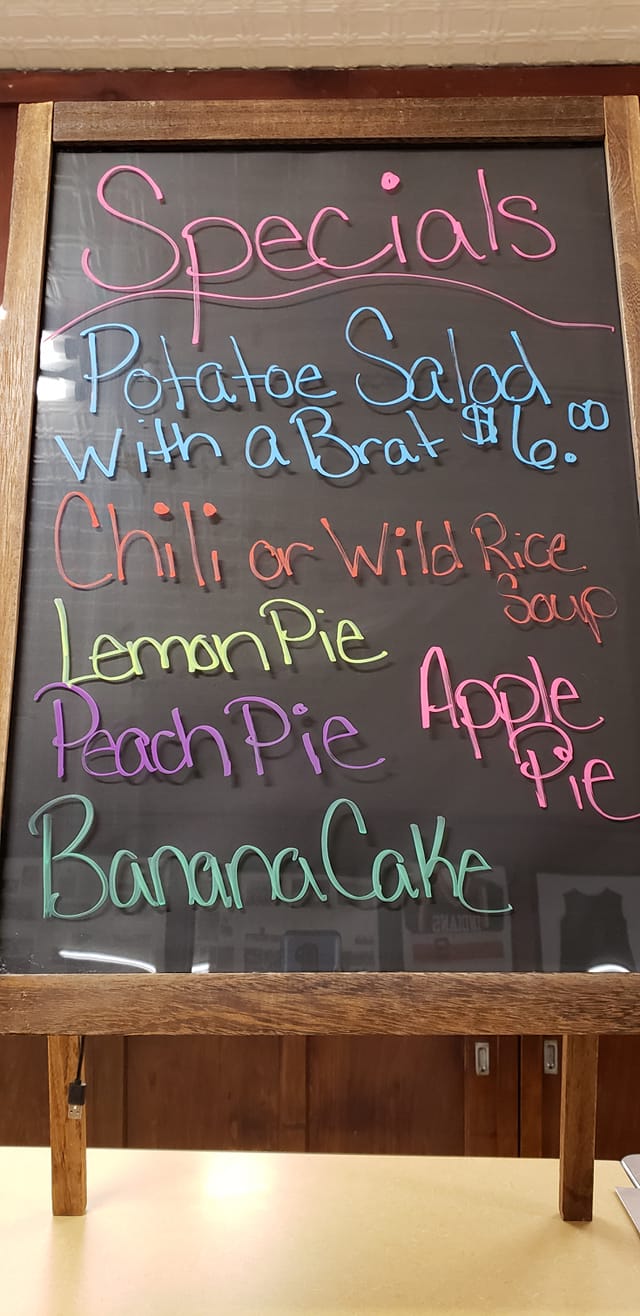 Specials
Potatoe Salad
with a Brat $6.00
Chili or Wild Rice
Soup
Lemon Pie
Apple
Pie
Peach Pie
Banana Cake